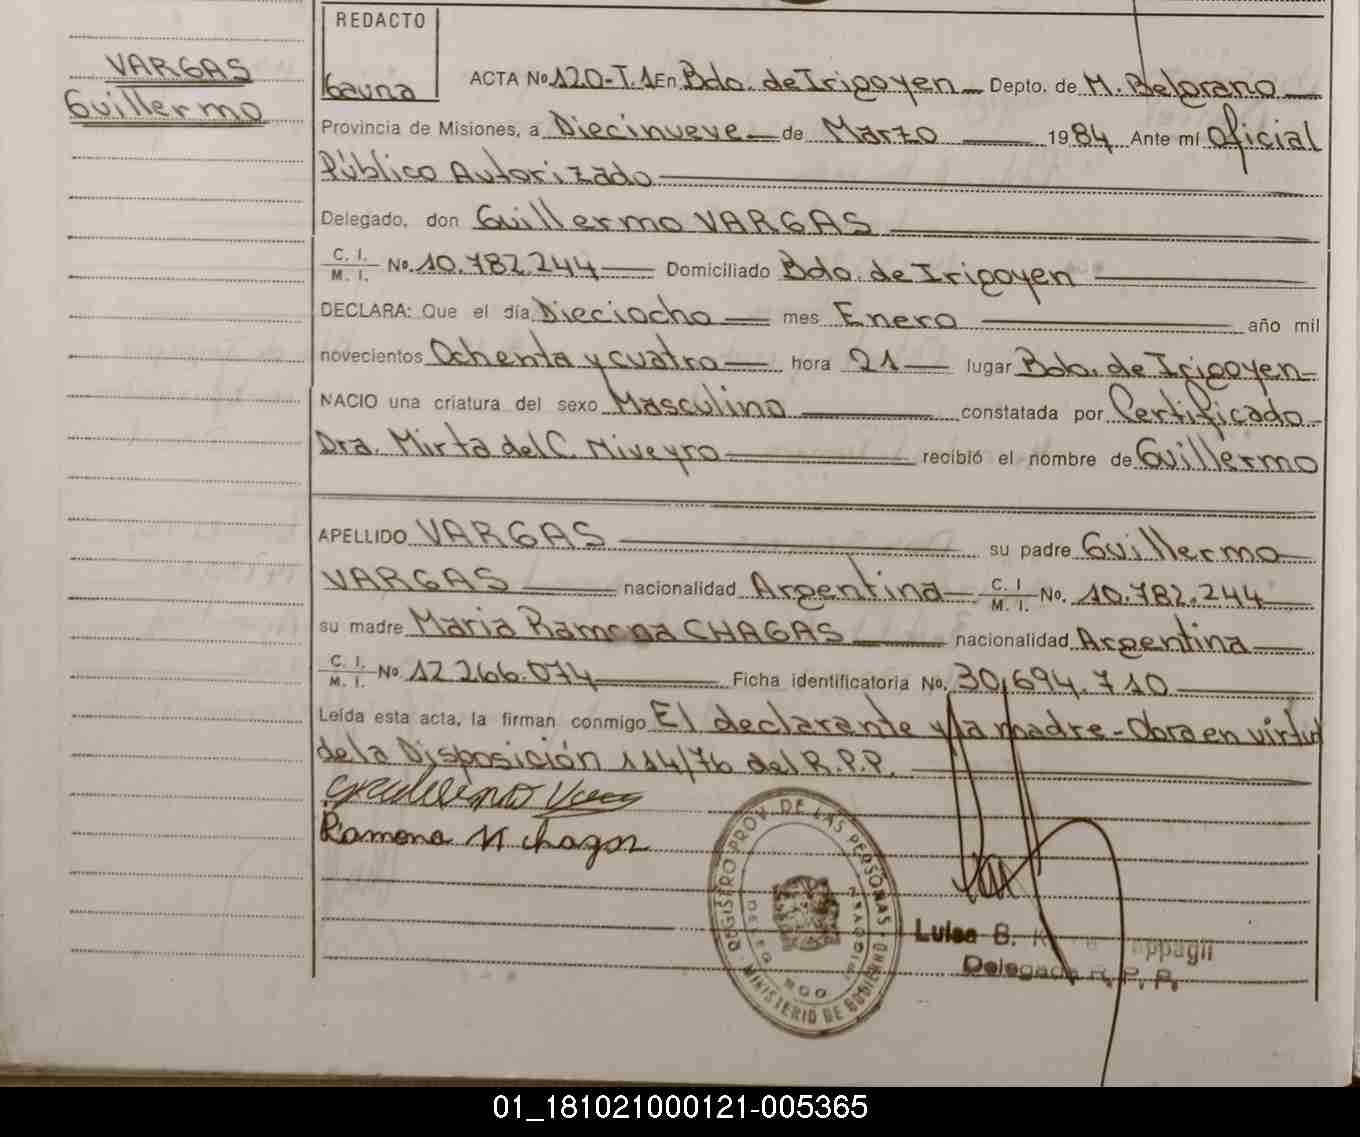 VARGAS
Guillermo
REDACTO
Gauna
ACTA No 120-T.1 En Bdo. de Irigoyen Depto. de M. Belgrano
Provincia de Misiones, a Diecinueve de Marzo 1984 Ante mí Oficial
Público Autorizado
Delegado, don Guillermo VARGAS
C. I. M. I. No. 10.782.244 Domiciliado Bdo. de Irigoyen
DECLARA: Que el día Dieciocho mes Enero año mil
novecientos Ochenta y cuatro hora 21 lugar Bdo. de Irigoyen
NACIO una criatura del sexo Masculino constatada por Certificado
Dra. Mirta del C. Niveyro recibió el nombre de Guillermo
APELLIDO VARGAS su padre Guillermo
VARGAS nacionalidad Argentina C. I. M. I. No. 10.782.244
su madre Maria Ramona CHAGAS nacionalidad Argentina
C. I. M. I. No 12.266.074 Ficha identificatoria No. 30.694.710
Leída esta acta, la firman conmigo El declarante y la madre - Obra en virtud
de la Disposición 114/76 del R.P.P.
Guillermo Vargas
Ramona M Chagas
REGISTRO PROV. DE LAS PERSONAS
MINISTERIO DE GOBIERNO
MISIONES
Luisa B.
Delegada R. P. P.
01_181021000121-005365